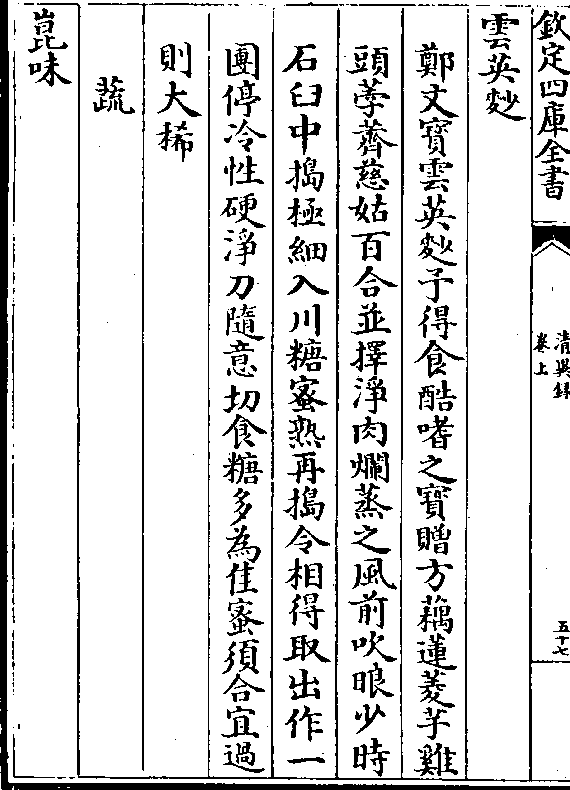 欽定四庫全書
清異録
卷上
五十七
雲英麨
鄭文寶雲英麨予得食酷嗜之寶贈方藕蓮菱芋雞
頭荸薺慈姑百合並擇淨肉爛蒸之風前吹眼少時
石臼中搗極細入川糖蜜熟再搗令相得取出作一
團停冷性硬淨刀隨意切食糖多為佳蜜須合宜過
則大稀
蔬
崑味